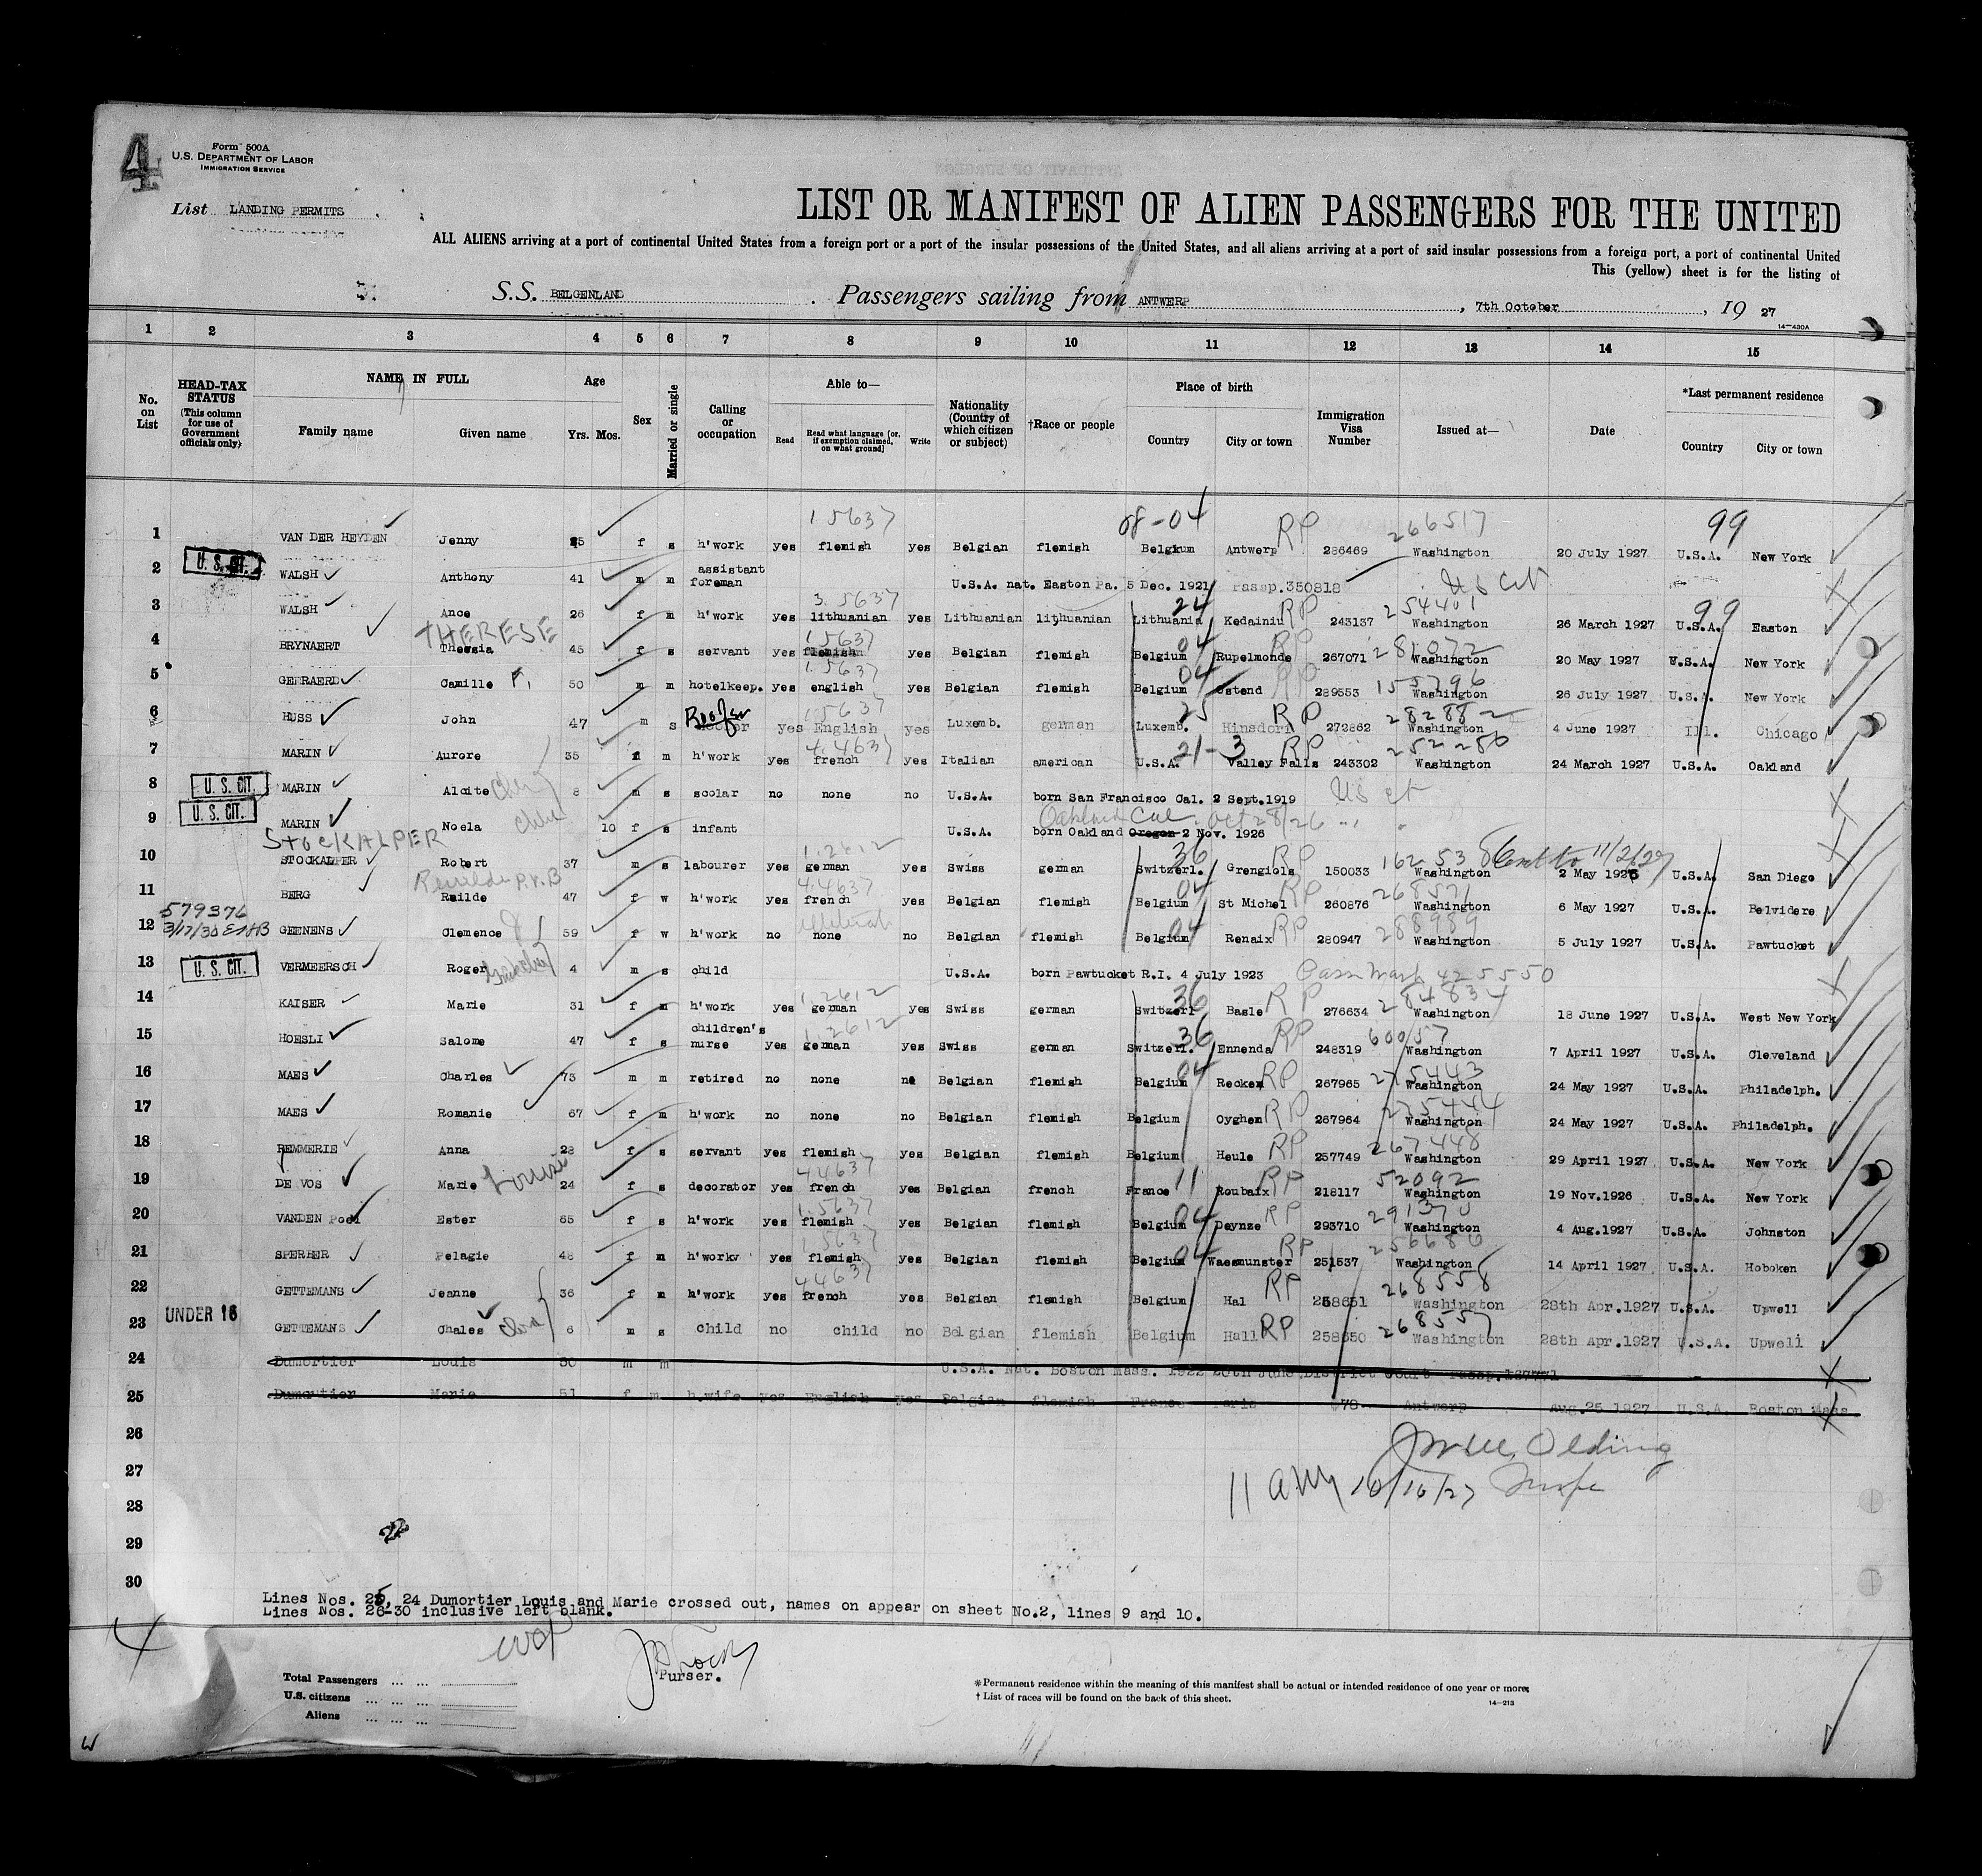 4
Form 500A
U.S. DEPARTMENT OF LABOR
IMMIGRATION SERVICE
List LANDING PERMITS
LIST OR MANIFEST OF ALIEN PASSENGERS FOR THE UNITED
ALL ALIENS arriving at a port of continental United States from a foreign port or a port of the insular possessions of the United States, and all aliens arriving at a port of said insular possessions from a foreign port, a port of continental United
This (yellow) sheet is for the listing of
S.S. BELGENLAND Passengers sailing from ANTWERP, 7th October, 19 27
14-430A
1 2 3 4 5 6 7 8 9 10 11 12 13 14 15
No. on List
HEAD-TAX STATUS (This column for use of Government officials only)
NAME IN FULL
Family name Given name
Age Yrs. Mos.
Sex
Married or single
Calling or occupation
Able to—
Read Read what language [or, if exemption claimed, on what ground] Write
Nationality (Country of which citizen or subject)
†Race or people
Place of birth
Country City or town
Immigration Visa Number
Issued at—
Date
*Last permanent residence
Country City or town
15637 08-04 RP 266517 99
1 VAN DER HEYDEN Jenny 25 f s h'work yes flemish yes Belgian flemish Belgium Antwerp 286469 Washington 20 July 1927 U.S.A. New York
2 U.S. CIT. WALSH Anthony 41 m m assistant foreman U.S.A. nat. Easton Pa. 5 Dec. 1921 Passp.350818 US Cit
3. 5637 24 RP 254401 99
3 WALSH Ance 26 f m h'work yes lithuanian yes Lithuanian lithuanian Lithuania Kedainiu 243137 Washington 26 March 1927 U.S.A. Easton
THERESE 1.5637 04 RP 281072
4 BRYNAERT Thessia 45 f s servant yes flemish yes Belgian flemish Belgium Rupelmonde 267071 Washington 20 May 1927 U.S.A. New York
1.5637 04 RP 155796
5 GEERAERD Camille F. 50 m m hotelkeep. yes english yes Belgian flemish Belgium Ostend 289553 Washington 26 July 1927 U.S.A. New York
Roofer 15637 25 RP 282882
6 HUSS John 47 m s yes English yes Luxemb. german Luxemb. Hinsdorf 272862 Washington 4 June 1927 Ill. Chicago
4.4637 21-3 RP 252280
7 MARIN Aurore 35 f m h'work yes french yes Italian american U.S.A. Valley Falls 243302 Washington 24 March 1927 U.S.A. Oakland
8 U.S. CIT. MARIN Alcite 8 m s scolar no none no U.S.A. born San Francisco Cal. 2 Sept.1919 US cit
Oakland Cal. Oct 28/26
9 U.S. CIT. MARIN Noela 10 f s infant U.S.A. born Oakland Oregon 2 Nov. 1926
STOCKALPER 1.2612 36 RP 16253 11/2/27
10 STOCKALPER Robert 37 m s labourer yes german yes Swiss german Switzerl. Grengiols 150033 Washington 2 May 1926 U.S.A. San Diego
4.4637 04 RP 268571
11 BERG Reilde 47 f w h'work yes french yes Belgian flemish Belgium St Michel 260876 Washington 6 May 1927 U.S.A. Belvidere
579376 04 RP 288989
12 GEENENS Clemence 59 f w h'work no none no Belgian flemish Belgium Renaix 280947 Washington 5 July 1927 U.S.A. Pawtucket
13 U.S. CIT. VERMEERSCH Roger 4 m s child U.S.A. born Pawtucket R.I. 4 July 1923 425550
1.2612 36 RP 284834
14 KAISER Marie 31 f m h'work yes german yes Swiss german Switzerl Basle 276634 Washington 18 June 1927 U.S.A. West New York
1.2612 36 RP 60057
15 HOESLI Salome 47 f s children's nurse yes german yes Swiss german Switzerl. Ennenda 248319 Washington 7 April 1927 U.S.A. Cleveland
04 RP 275443
16 MAES Charles 73 m m retired no none no Belgian flemish Belgium Reckem 267965 Washington 24 May 1927 U.S.A. Philadelph.
RP 275444
17 MAES Romanie 67 f m h'work no none no Belgian flemish Belgium Oyghem 267964 Washington 24 May 1927 U.S.A. Philadelph.
RP 267448
18 REMMERIE Anna 28 f s servant yes flemish yes Belgian flemish Belgium Heule 257749 Washington 29 April 1927 U.S.A. New York
Louise 44637 11 RP 52092
19 DE VOS Marie 24 f s decorator yes french yes Belgian french France Roubaix 218117 Washington 19 Nov.1926 U.S.A. New York
1.5637 04 RP 291370
20 VANDEN Poel Ester 65 f s h'work yes flemish yes Belgian flemish Belgium Deynze 293710 Washington 4 Aug.1927 U.S.A. Johnston
1.5637 04 RP 256680
21 SPERBER Pelagie 48 f m h'workv yes flemish yes Belgian flemish Belgium Waesmunster 251537 Washington 14 April 1927 U.S.A. Hoboken
44637 RP 268558
22 GETTEMANS Jeanne 36 f m h'work yes french yes Belgian flemish Belgium Hal 258651 Washington 28th Apr.1927 U.S.A. Upwell
RP 268557
23 UNDER 16 GETTEMANS Chales 6 m s child no child no Belgian flemish Belgium Hall 258650 Washington 28th Apr.1927 U.S.A. Upwell
24 Dumortier Louis 50 m m U.S.A. Nat. Boston Mass. 1922 20th June District Court Passp.
25 Dumortier Marie 51 f m h.wife yes English yes Belgian flemish France Paris 78 Antwerp Aug.25 1927 U.S.A. Boston Mass
26
27
28
29
30
Olding
11 am 10/16/27
Lines Nos. 25, 24 Dumortier Louis and Marie crossed out, names on appear on sheet No.2, lines 9 and 10.
Lines Nos. 26-30 inclusive left blank.
Purser.
Total Passengers ... ...
U.S. citizens ... ... ...
Aliens ... ... ...
*Permanent residence within the meaning of this manifest shall be actual or intended residence of one year or more.
† List of races will be found on the back of this sheet.
14-213
W